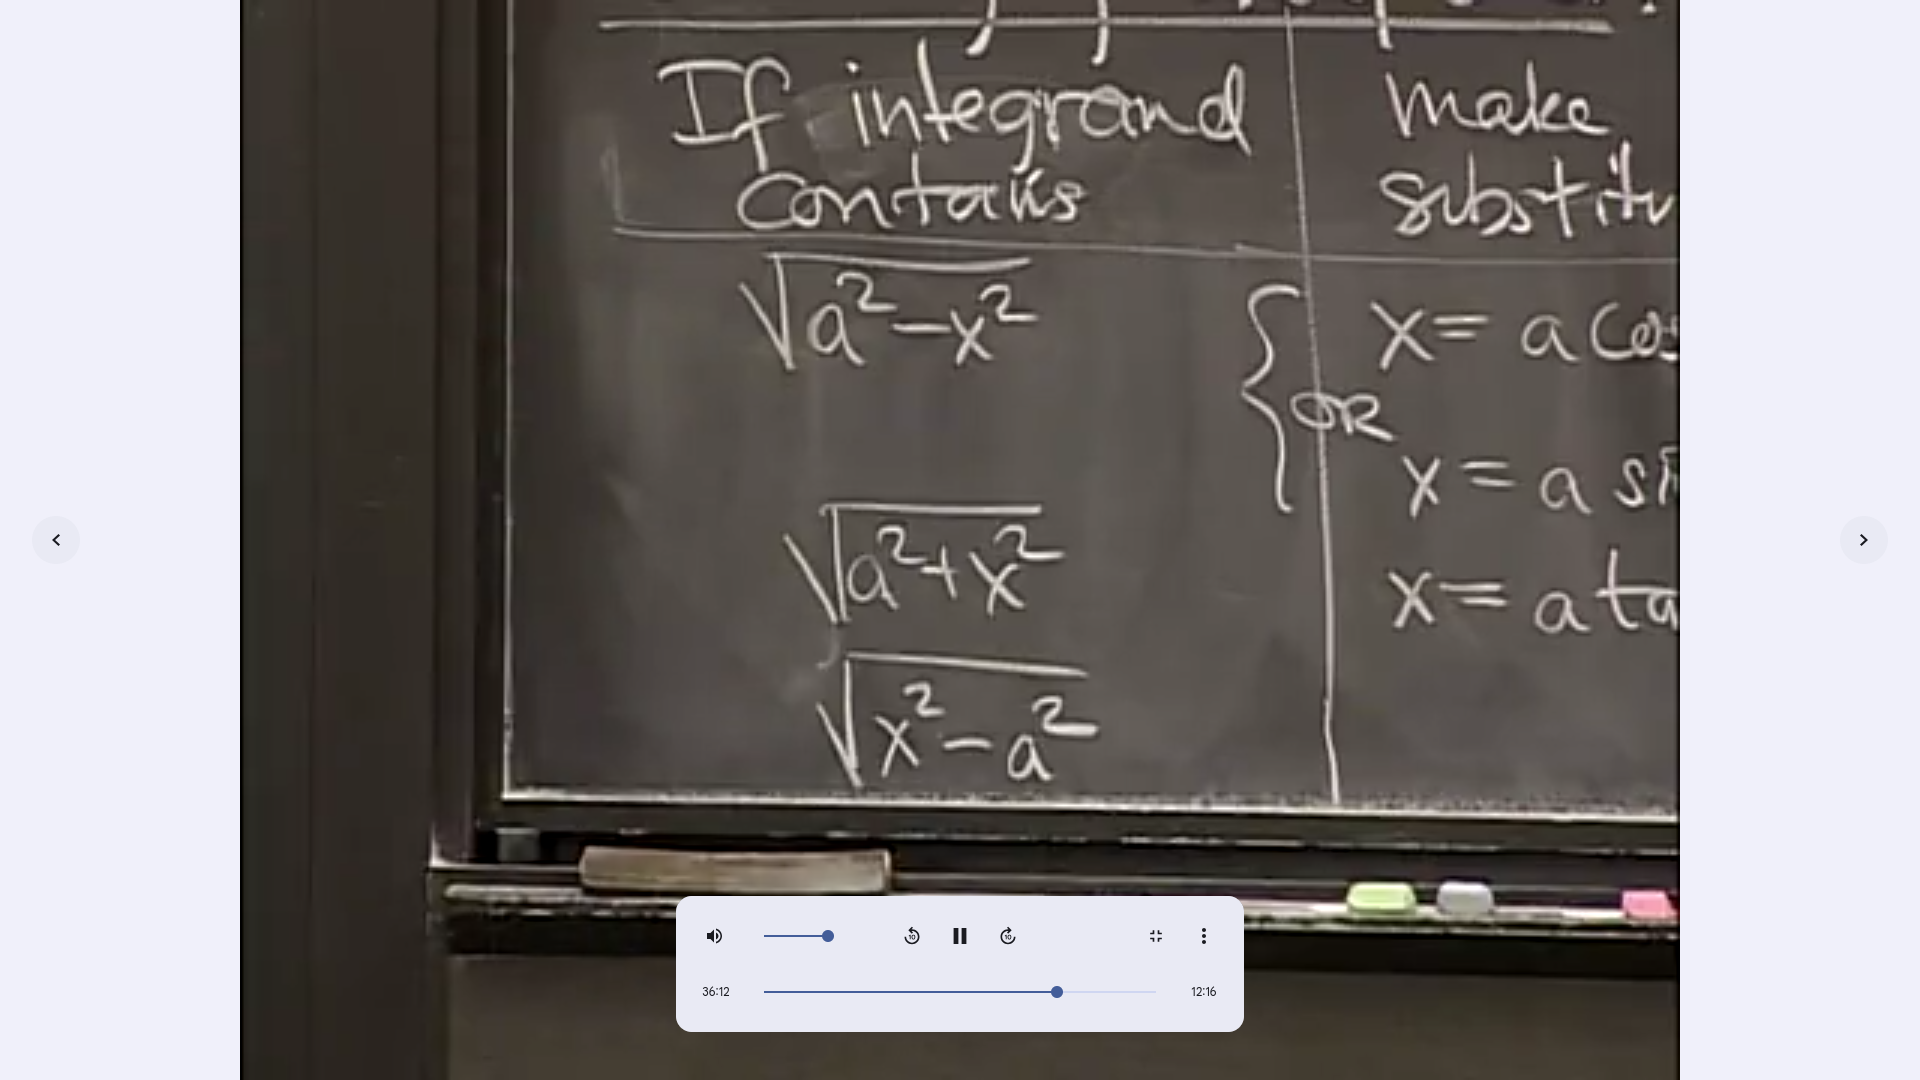 If integrand
contains
make
substitu
√a²-x²
x = a cos
OR
x = a si
√a²+x²
x = a ta
√x²-a²
36:12
12:16